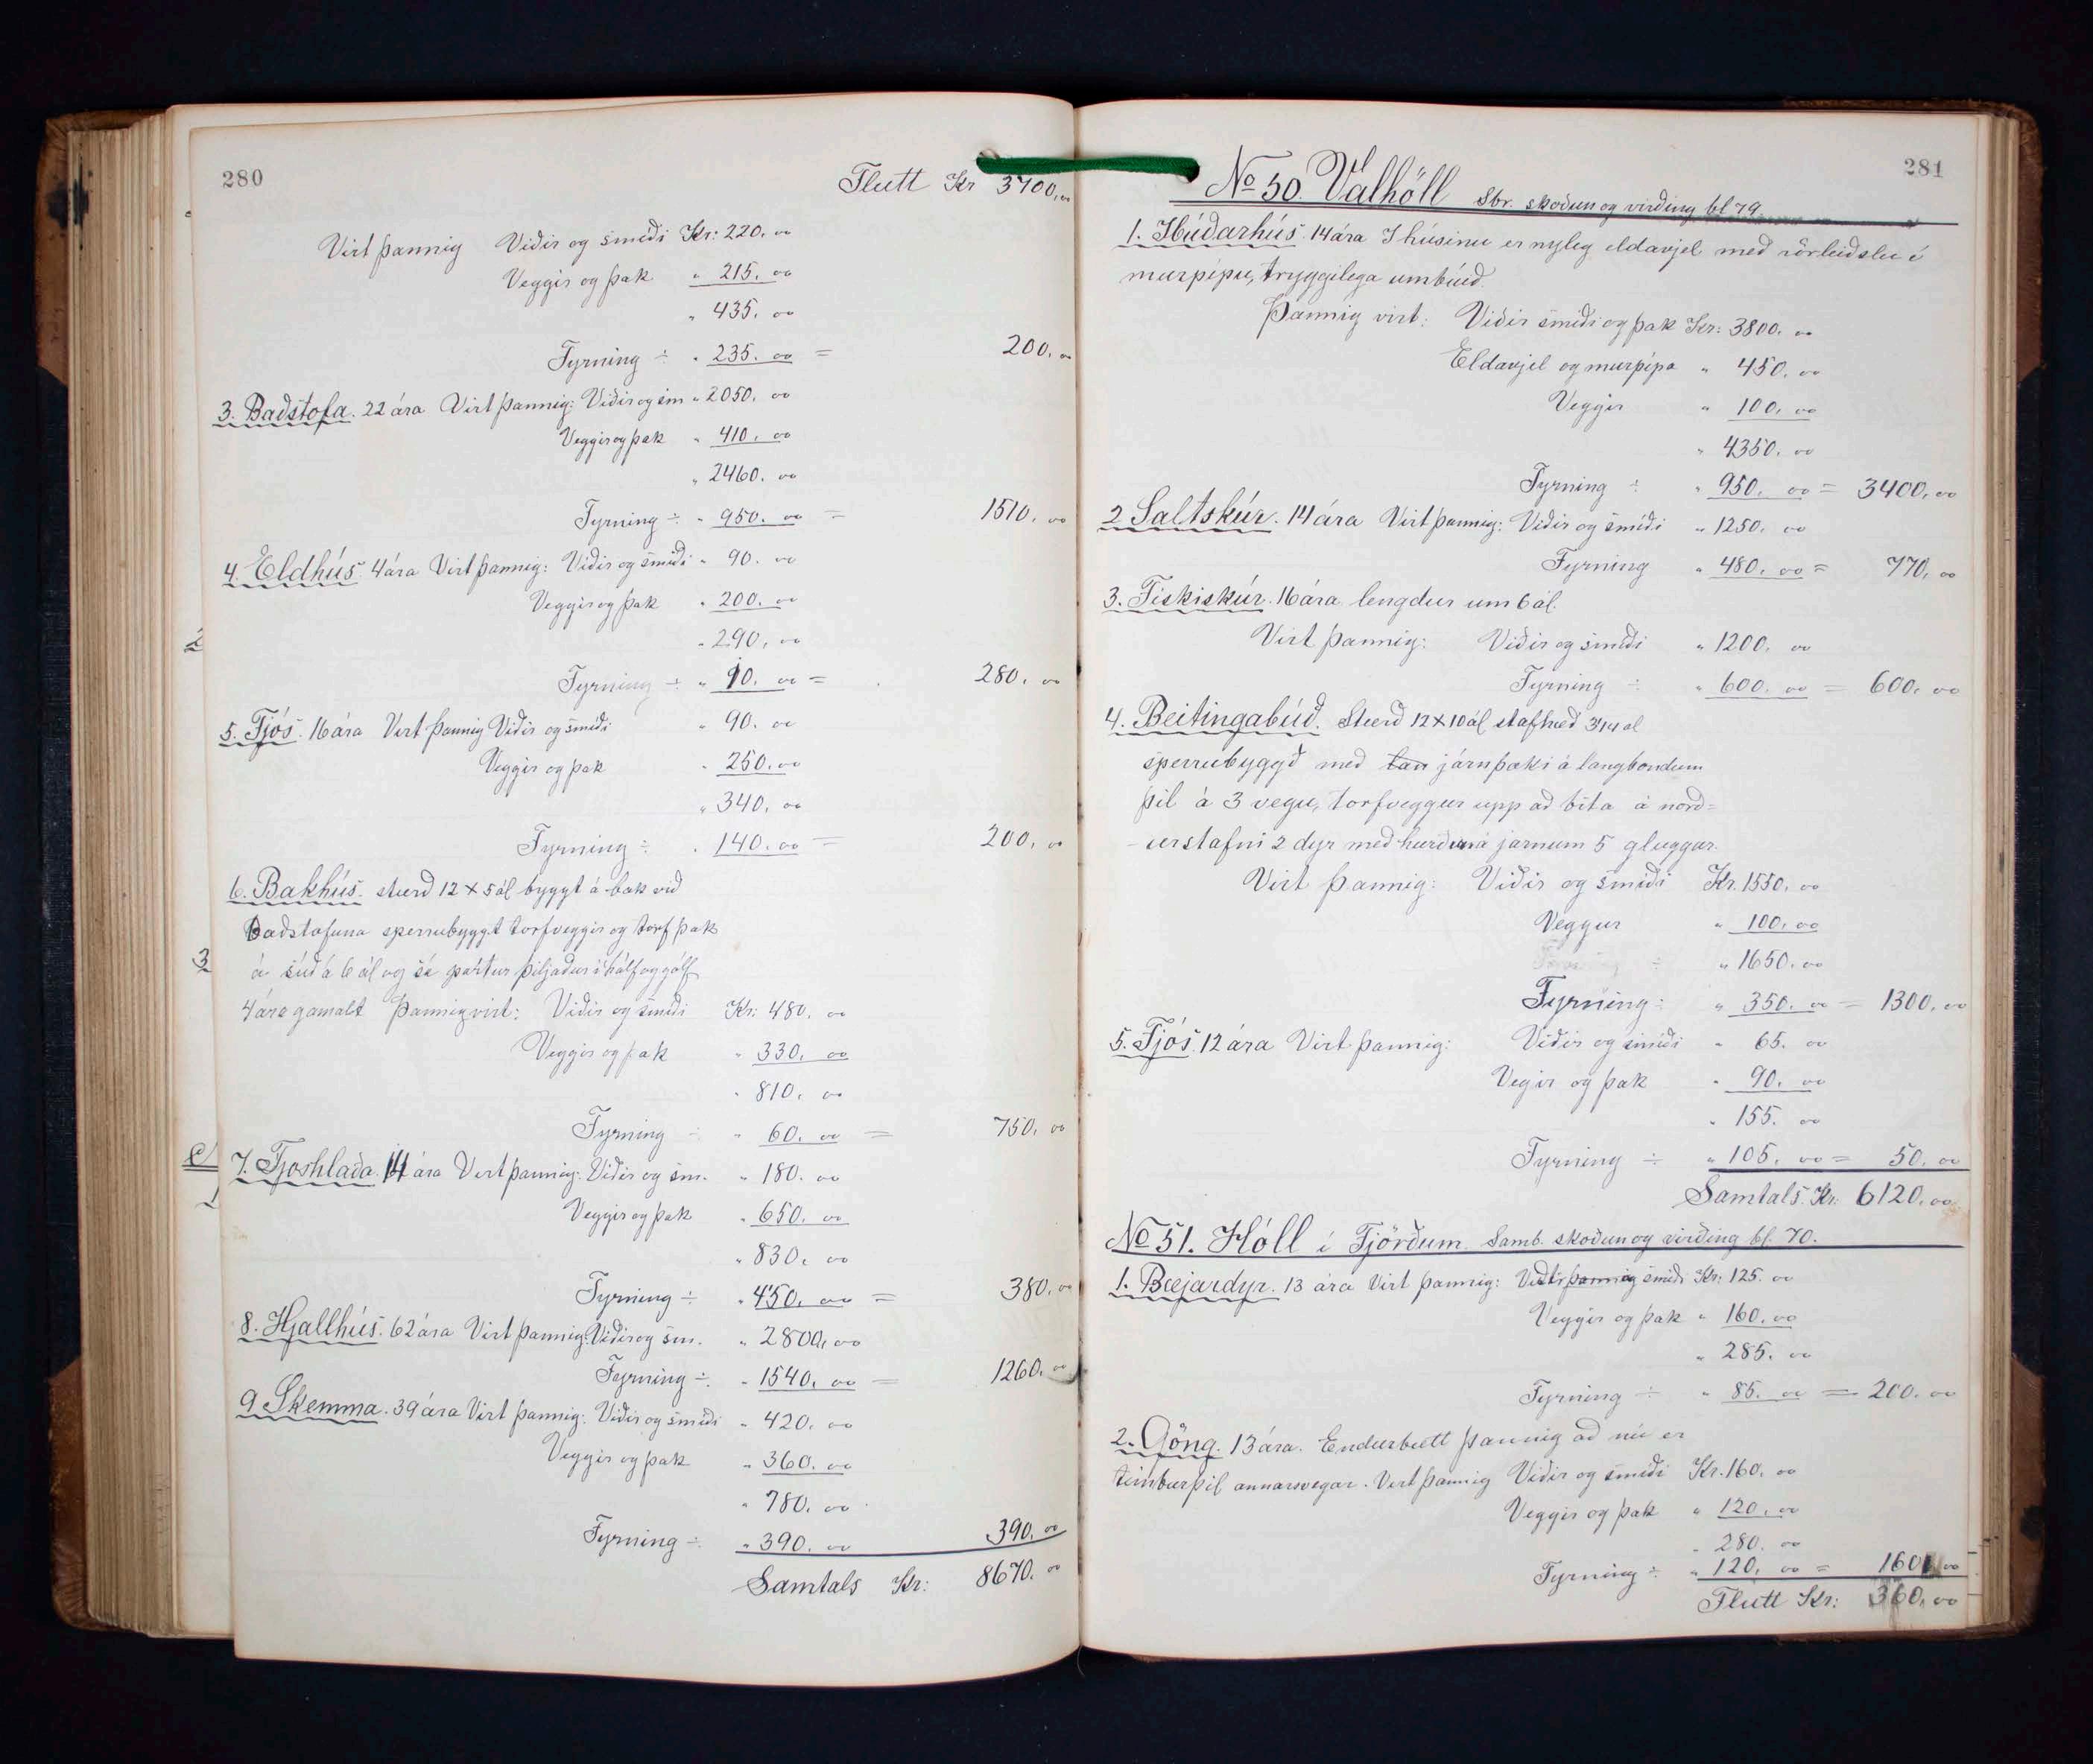 280
Flutt Kr 3700,00
Virt þannig Viðir og smíði Kr: 220. 00
Veggir og þak " 215. 00
" 435. 00
Fyrning ÷ " 235. 00 = 200. 00
3. Baðstofa. 22 ára Virt þannig: Viðir og sm " 2050. 00
Veggir og þak " 410. 00
" 2460. 00
Fyrning ÷ " 950. 00 = 1510. 00
4. Eldhús 4 ára Virt þannig: Viðir og smíði " 90. 00
Veggir og þak " 200. 00
" 290. 00
Fyrning ÷ " 10. 00 = 280. 00
5. Fjós. 16 ára Virt þannig Viðir og smíði " 90. 00
Veggir og þak " 250. 00
" 340. 00
Fyrning ÷ " 140. 00 = 200. 00
6. Bakhús stærð 12 x 5 ál byggt á bak við
Baðstofuna sperrubyggt torfveggir og torfþak
á súð á 6 ál og sá partur þiljaður í hólf og gólf
4 ára gamalt Þannig virt: Viðir og smíði Kr: 480. 00
Veggir og þak " 330. 00
" 810. 00
Fyrning ÷ " 60. 00 = 750. 00
7. Fjoshlaða. 14 ára Virt þannig: Viðir og sm. " 180. 00
Veggir og þak " 650. 00
" 830. 00
Fyrning ÷ " 450. 00 = 380. 00
8. Hjallhús. 62 ára Virt þannig: Viðir og sm. " 2800. 00
Fyrning ÷ " 1540. 00 = 1260. 00
9 Skemma. 39 ára Virt þannig: Viðir og smíði " 420. 00
Veggir og þak " 360. 00
" 780. 00
Fyrning ÷ " 390. 00 390. 00
Samtals Kr: 8670. 00
281
No 50. Valhöll Sbr. skoðun og virðing bl 79
1. Íbúðarhús. 14 ára I húsinu er nyleg eldavjel með rörleiðslu í
murpípu, tryggilega umbúið.
Þannig virt: Viðir smíði og þak Kr: 3800. 00
Eldavjel og murpípa " 450. 00
Veggir " 100. 00
" 4350. 00
Fyrning ÷ " 950. 00 = 3400. 00
2 Saltskúr. 14 ára Virt þannig: Viðir og smíði " 1250. 00
Fyrning " 480. 00 = 770. 00
3. Fiskiskúr. 16 ára lengdur um 6 ál.
Virt þannig: Viðir og smíði " 1200. 00
Fyrning ÷ " 600. 00 = 600. 00
4. Beitingabúð. Stærð 12 x 10 ál stafhæð 3 1/4 al
sperrubyggð með járnþaki á langböndum
þil á 3 vegu, torfveggur upp að bita á norð=
-urstafni 2 dyr með hurðum á jarnum 5 gluggar.
Virt þannig: Viðir og smíði Kr. 1550. 00
Veggur " 100. 00
" 1650. 00
Fyrning ÷ " 350. 00 = 1300. 00
5. Fjós 12 ára Virt þannig: Viðir og smíði " 65. 00
Vegir og þak " 90. 00
" 155. 00
Fyrning ÷ " 105. 00 = 50. 00
Samtals. Kr: 6120. 00
No 51. Hóll í Fjörðum. Samb. skoðun og virðing bl. 70.
1. Bæjardyr. 13 ára Virt þannig: smíði Kr: 125. 00
Veggir og þak " 160. 00
" 285. 00
Fyrning ÷ " 85. 00 = 200. 00
2. Göng. 13 ára. Endurbætt þannig að nú er
timburþil annarsvegar. Virt þannig Viðir og smíði Kr. 160. 00
Veggir og þak " 120. 00
" 280. 00
Fyrning ÷ " 120. 00 = 160. 00
Flutt Kr: 360. 00